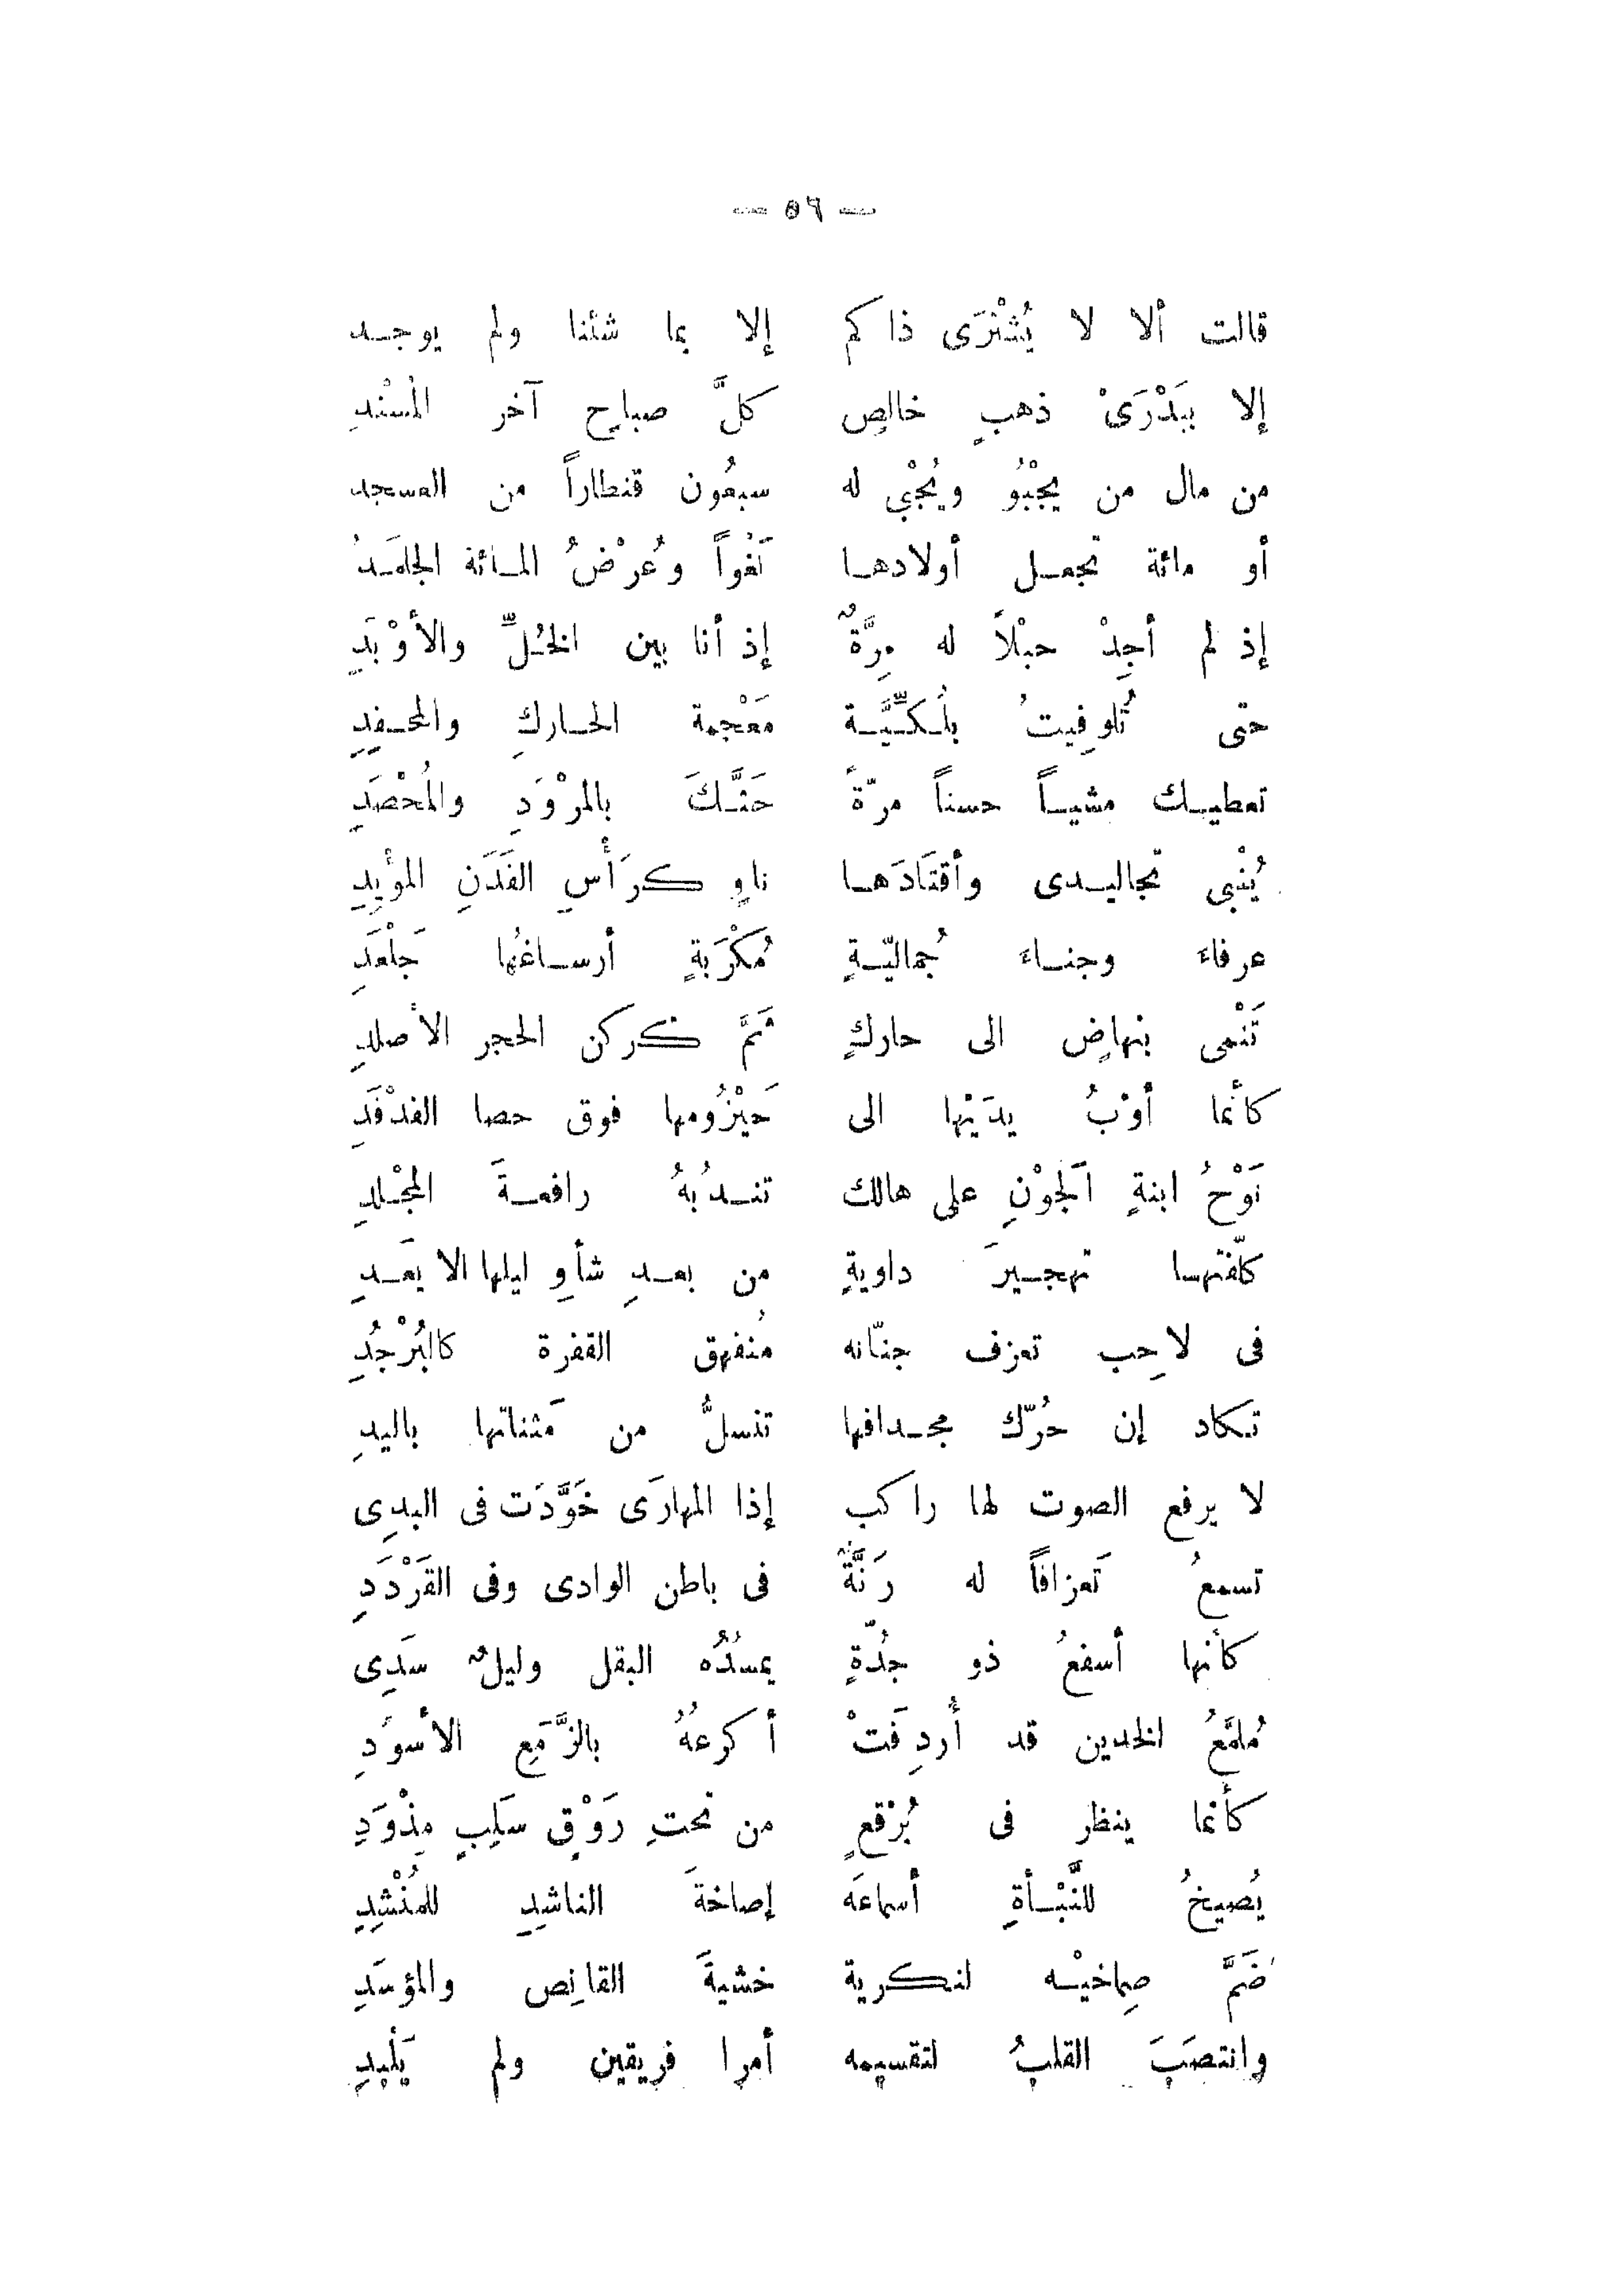 — ٥٦ —
قالت ألا لا يُشْتَرَى ذاكم إلا بما شئنا ولم يوجد
إلا ببَدْرَىْ ذهبٍ خالصٍ كلَّ صباحٍ آخر المُسْنَدِ
من مال من يجْبُو ويُجْبي له سبعُون قنطاراً من العسجد
أو مائة تجعل أولادها لَغْواً وعُرْضُ المائة الجلمَدُ
إذ لم أجِدْ حبْلاً له مِرَّةٌ إذ أنا بين الخُلِّ والأوْبَدِ
حتى تُلوفِيتُ بلُكِّيَّة مَعْجمة الحاركِ والمحفِدِ
تعطيك مشياً حسناً مرّةً حَثَّكَ بالمرْوَدِ والمُحْصَدِ
يُنْبى تجاليدى وأقتَادَها ناوٍ كرَأْسِ الفَدَنِ المؤْيِدِ
عرفاءَ وجناءَ جُماليّةٍ مُكْرَبةٍ أرساغُها جَلْعَدِ
تَنْمى بنهاضٍ الى حاركٍ ثَمَّ كركن الحجر الأصلدِ
كأنما أوْبُ يدَيْها الى حَيْزُومها فوق حصا الفدْفَدِ
نَوْحُ ابنةِ الجَوْنِ على هالك تندُبهُ رافعةَ المِجْلدِ
كلّفتها تهجيرَ داويةٍ من بعدِ شأوِ ليلها الا بعَدِ
فى لاحِب تعزف جنّانه مُنفهق القفرة كالبُرْجُدِ
تكاد إن حُرّك مجدافها تنسلُّ من مَثناتها باليدِ
لا يرفع الصوت لها راكب إذا المهارَى خَوَّدَت فى البدِى
تسمعُ تَعزافاً له رَنَّةٌ فى باطن الوادى وفى القَرْدَدِ
كأنها أسفعُ ذو جُدّةٍ يمسُدُه البقل وليلٌ سَدِى
مُلمَّعُ الخدين قد أُردِفَتْ أكرعُهُ بالزَّمَعِ الأسوَدِ
كأنما ينظر فى بُرْقعٍ من تحتِ رَوْقٍ سَلِبٍ مِذْوَدِ
يُصيخُ للنَّبْأةِ أسماعَه إصاخةَ الناشِدِ للمُنْشِدِ
ضَمَّ صِماخيْه لنكرية خشيةَ القانِص والمؤسَدِ
وانتصَبَ القلبُ لتقسيمه أمرا فريقين ولم يَلْبِدِ